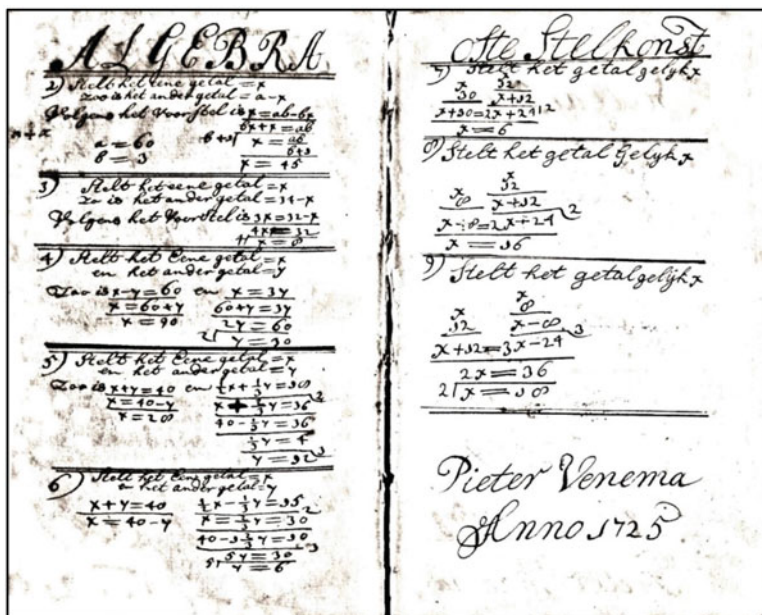 ALGEBRA
2) Stelt het eene getal = x
zoo is het ander getal = a-x
Volgens het Voorstel is x = ab-bx
bx+x = ab
a = 60
b = 3
x = ab
b+1
x = 45
3) Stelt het eene getal = x
zo is het ander getal =
Volgens het Voorstel is 3x = 32-x
4x = 32
4 x = 8
4) Stelt het Eene getal = x
en het ander getal = y
Zoo is x-y = 60 en x = 3y
x = 60+y 60+y = 3y
x = 90 2y = 60
2 y = 30
5) Stelt het Eene getal = x
en het ander getal = y
Zoo is x+y = 40 en ½x+⅓y = 18
x = 40-y
x = 28
40-⅓y = 36
⅓y = 4
y = 12
6) Stelt het Eene getal = x
en het ander getal = y
x+y = 40 ½x-⅓y = 15
x = 40-y
y = 6
ofte Stelkonst
7) Stelt het getal gelyk x
x x
30 12
x+30 = 2x+24
x = 6
8) Stelt het getal Gelyk x
x x
8 12
x+12 2
x-8 = 2x+24
x = 36
9) Stelt het getal gelyk x
x x
12 8
x-8 3
x+12 = 3x-24
2x = 36
2 x = 18
Pieter Venema
Anno 1725